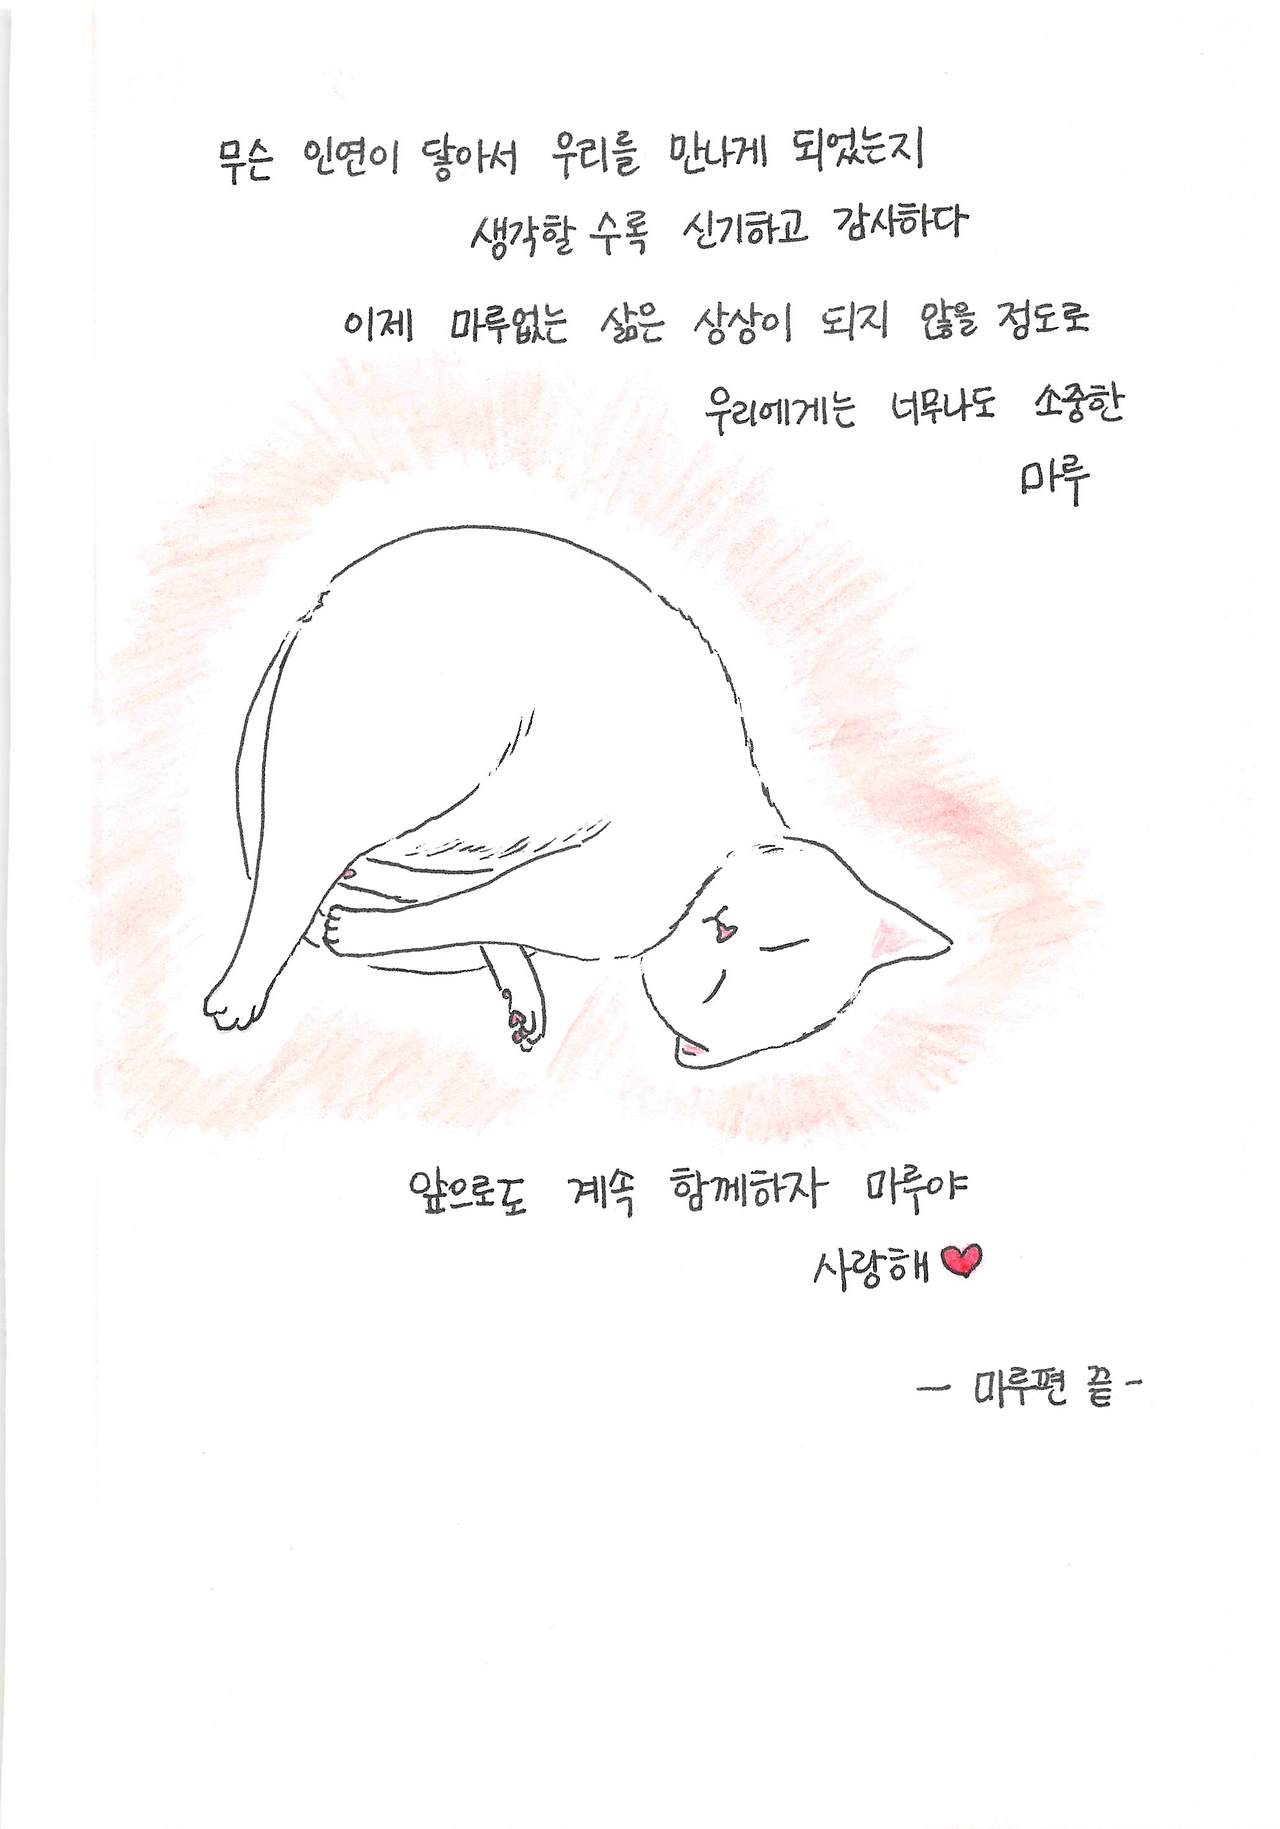 무슨 인연이 닿아서 우리를 만나게 되었는지
생각할 수록 신기하고 감사하다
이제 마루없는 삶은 상상이 되지 않을 정도로
우리에게는 너무나도 소중한
마루
앞으로도 계속 함께하자 마루야
사랑해♥
- 마루편 끝 -